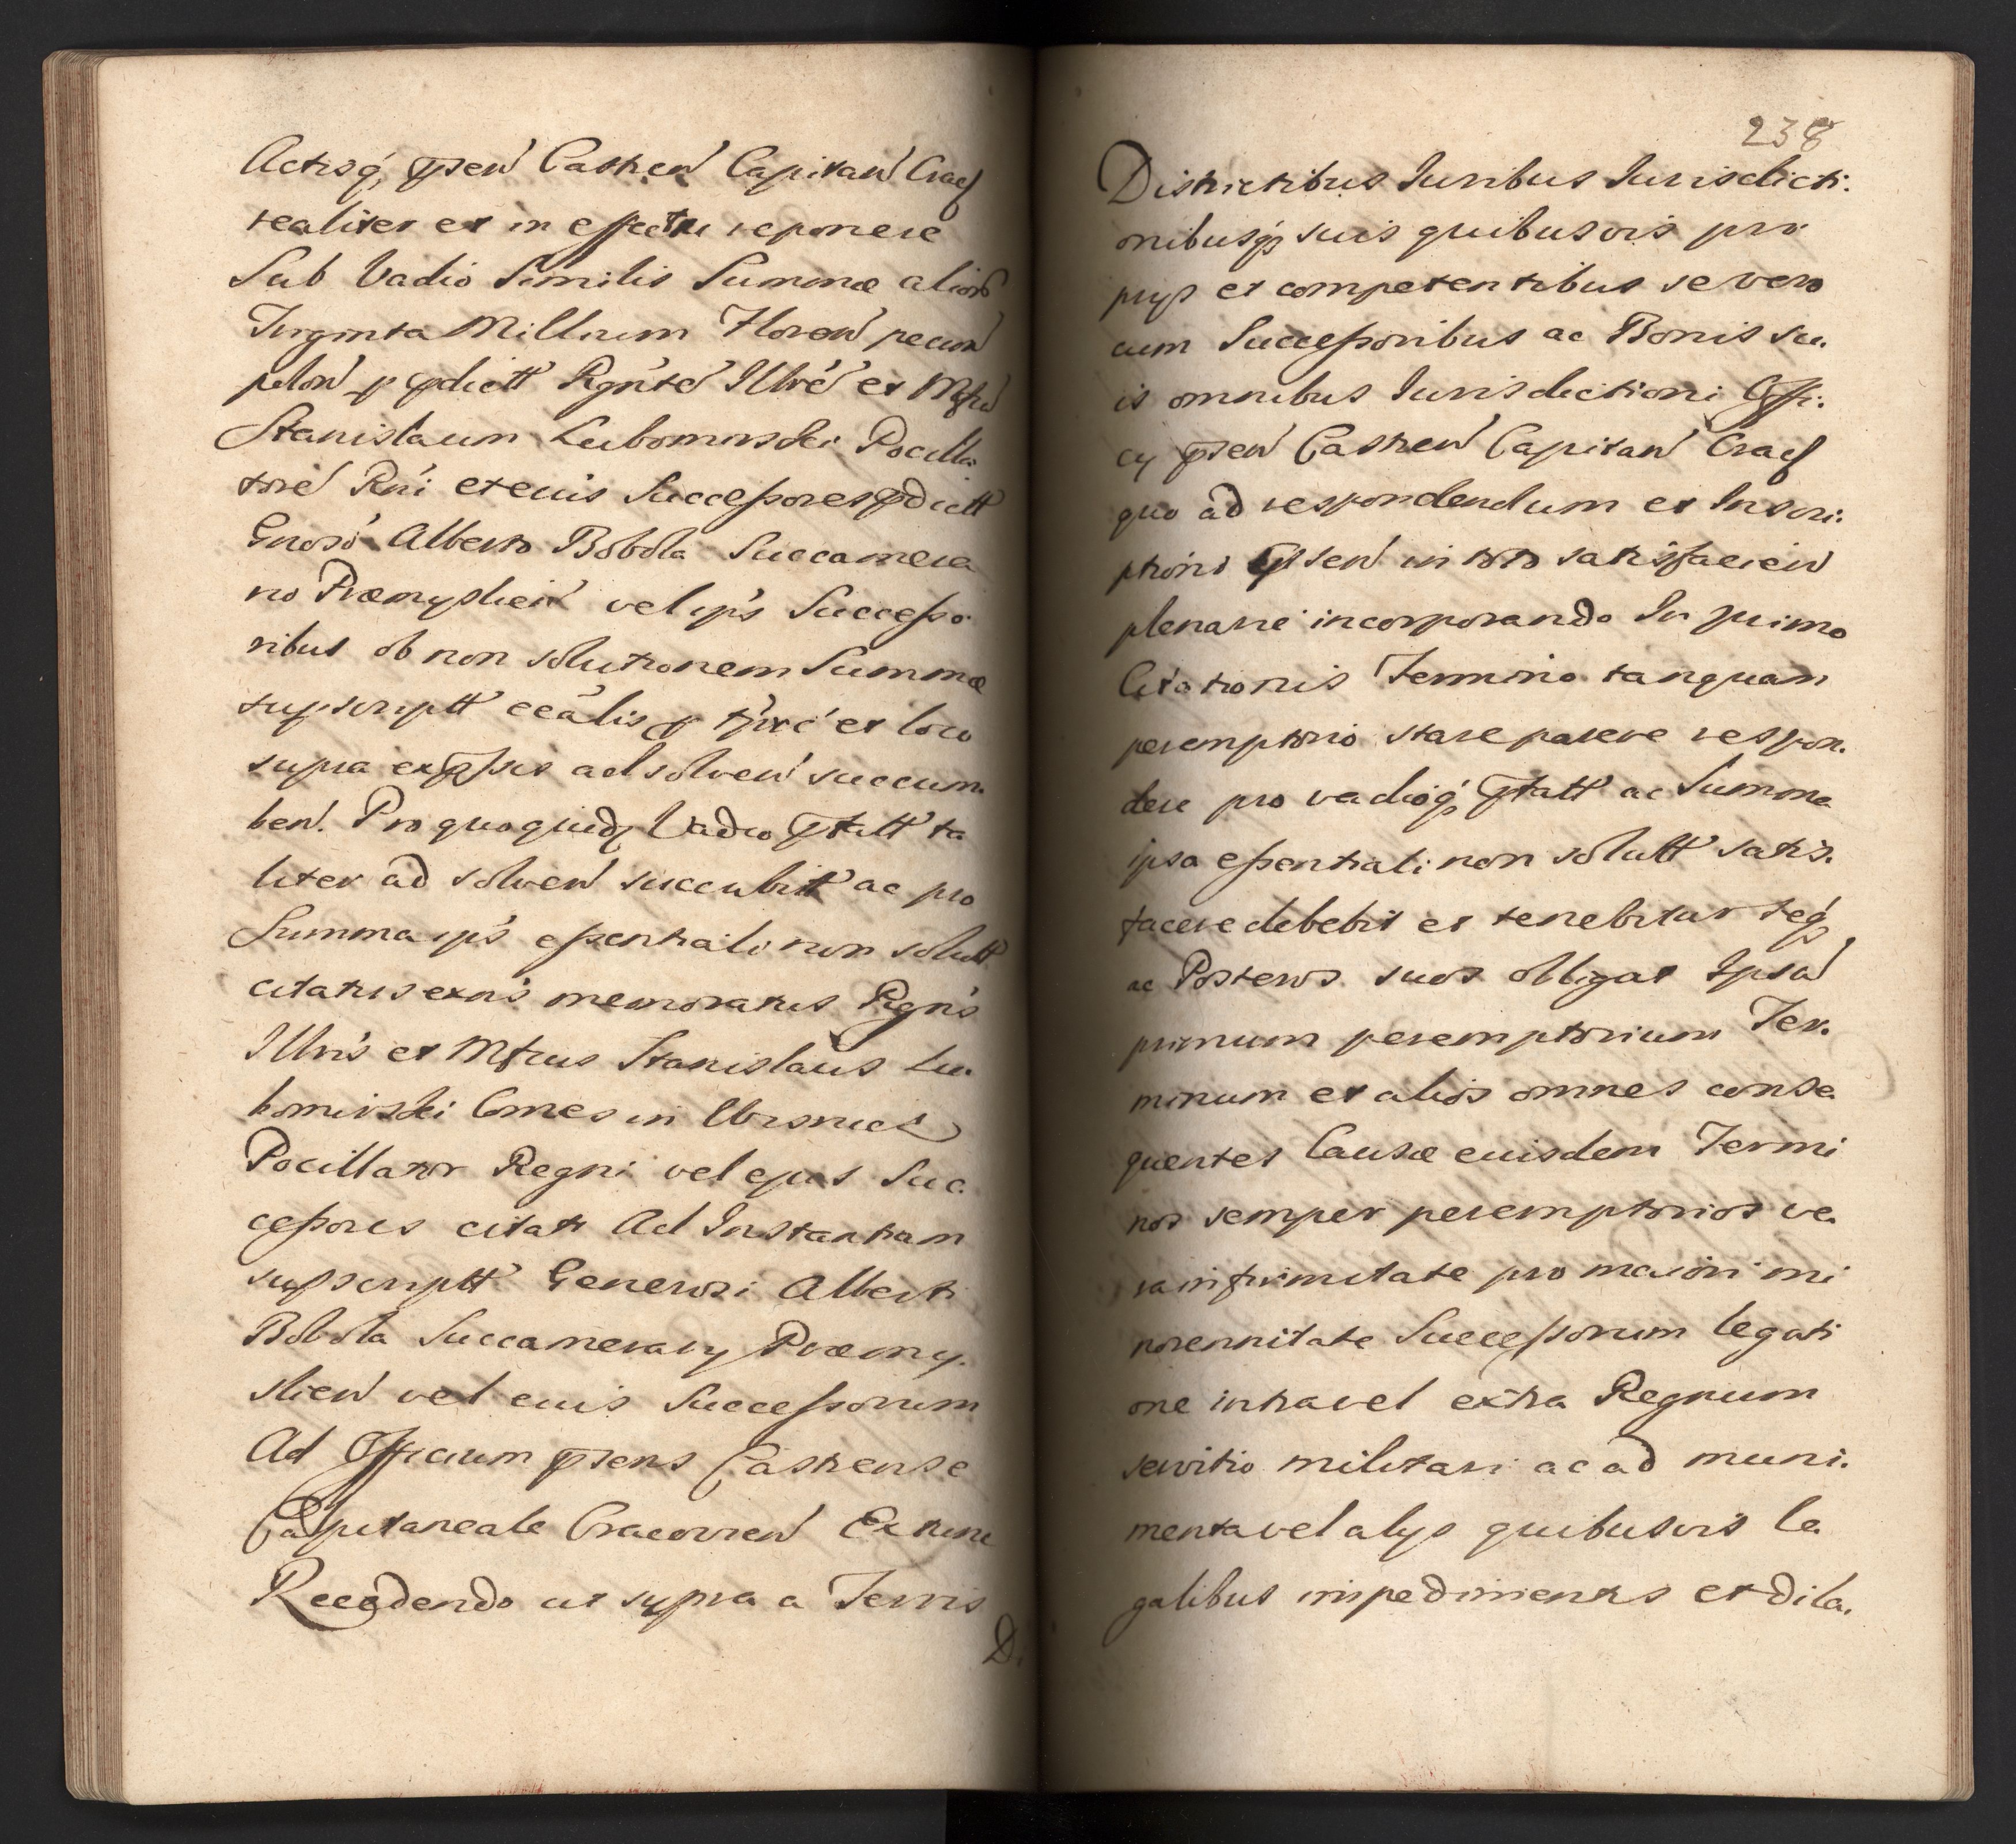 Actisq; pnsen Castren Capitan Crac
realiter et in effectu reponere
Sub Vadio Similis Summæ alior
Triginta Millium Floren pecun
polon p pdictt Rgnte Illre et Mfcu
Stanislaum Lubomirski Pocilla
tore Rni et euis Successores pdictt
Gnoso Alberto Bobola Succamera
rio Præmyslien vel ips Successo
ribus ob non solutionem Summæ
supscriptt eealis p tpre et loco
supra expssis ad solven succum
ben. Pro quoquidz Vadio pstatt ta
liter ad solven succubitt ac pro
Summa ips essentiali non solutt
citatus exns memoratus Rgns
Illris et Mfcus Stanislaus Lu
bomirski Comes in Wisnicz
Pocillator Regni vel ejus Suc
cessores citati Ad Instantiam
supscriptt Generosi Alberti
Bobola Succamerary Præmy.
slien vel euis Successorum
Ad Officium pnsens Castrense
Capitaneale Cracovien Ex tunc
Recedendo ut supra a Terris
D.
238
Districtibus Iuribus Iurisdicti.
onibusq; suis quibusvis pro
prys et competentibus se vero
cum Successoribus ac Bonis su.
is omnibus Iurisdictioni Offi.
cy pnsen Castren Capitan Crac
quo ad respondendum et Inscri.
ptioni pnsen in toto satisfacien
plenarie incorporando In primo
Citationis Termino tanquam
peremptorio stare parere respon.
dere pro vadioq; pstatt ac Summa
ipsa essentiali non solutt satis.
facere debebit et tenebitur seq;
ac Posteros suos obligat Ipsu
primum peremptorium Ter.
minum et alios omnes conse
quentes Causæ euisdem Termi
nos semper peremptorios ve.
ra infirmitate pro maiori mi
norennitate Successorum legati
one intra vel extra Regnum
servitio militari ac ad muni.
menta vel alys quibusvis le
galibus impedimentis et dila.